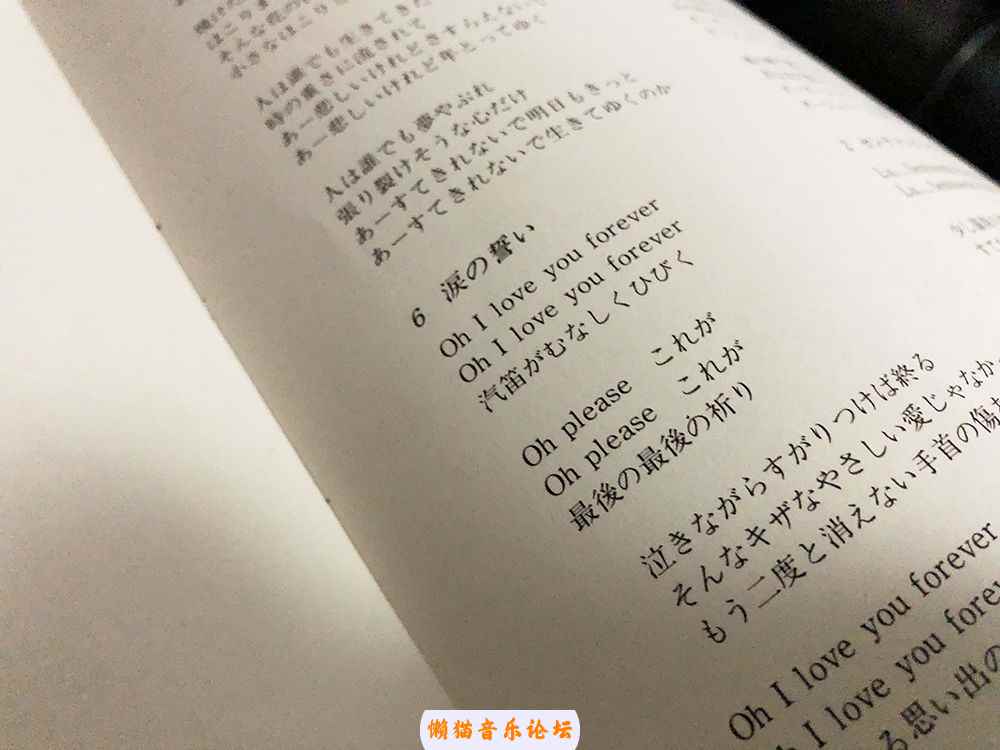 人は誰でも生きてきた
時の重さに流されて
あー悲しいけれどきすらえないで
あー悲しいけれど年とってゆく
人は誰でも夢やぶれ
張り裂けそうな心だけ
あーすてきれないで明日もきっと
あーすてきれないで生きてゆくのか
6 涙の誓い
Oh I love you forever
Oh I love you forever
汽笛がむなしくひびく
Oh please これが
Oh please これが
最後の最後の祈り
泣きながらすがりつけば終る
そんなキザなやさしい愛じゃなか
もう二度と消えない手首の傷
Oh I love you forever
I love you forev
る思い出の
懒猫音乐论坛